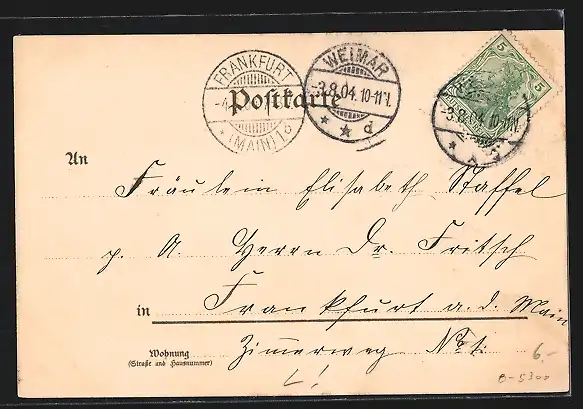 5 5
FRANKFURT
(MAIN) 1 b
WEIMAR
-3.8.04. 10-11V.
-3.8.04. 10-11V.
Postkarte
An
Fräulein Elisabeth Staffel
p. A. Herrn Dr. Fritsch
in Frankfurt a. d. Main
Wohnung
(Straße und Hausnummer)
Zimmerweg No 1.
6,-